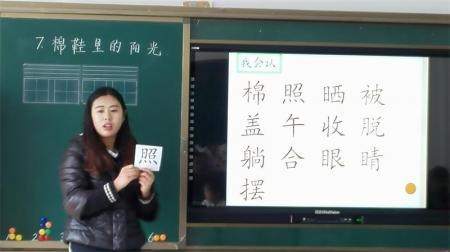 7.棉鞋里的阳光
我会认
棉 照 晒 被
盖 午 收 脱
躺 合 眼 睛
摆
照